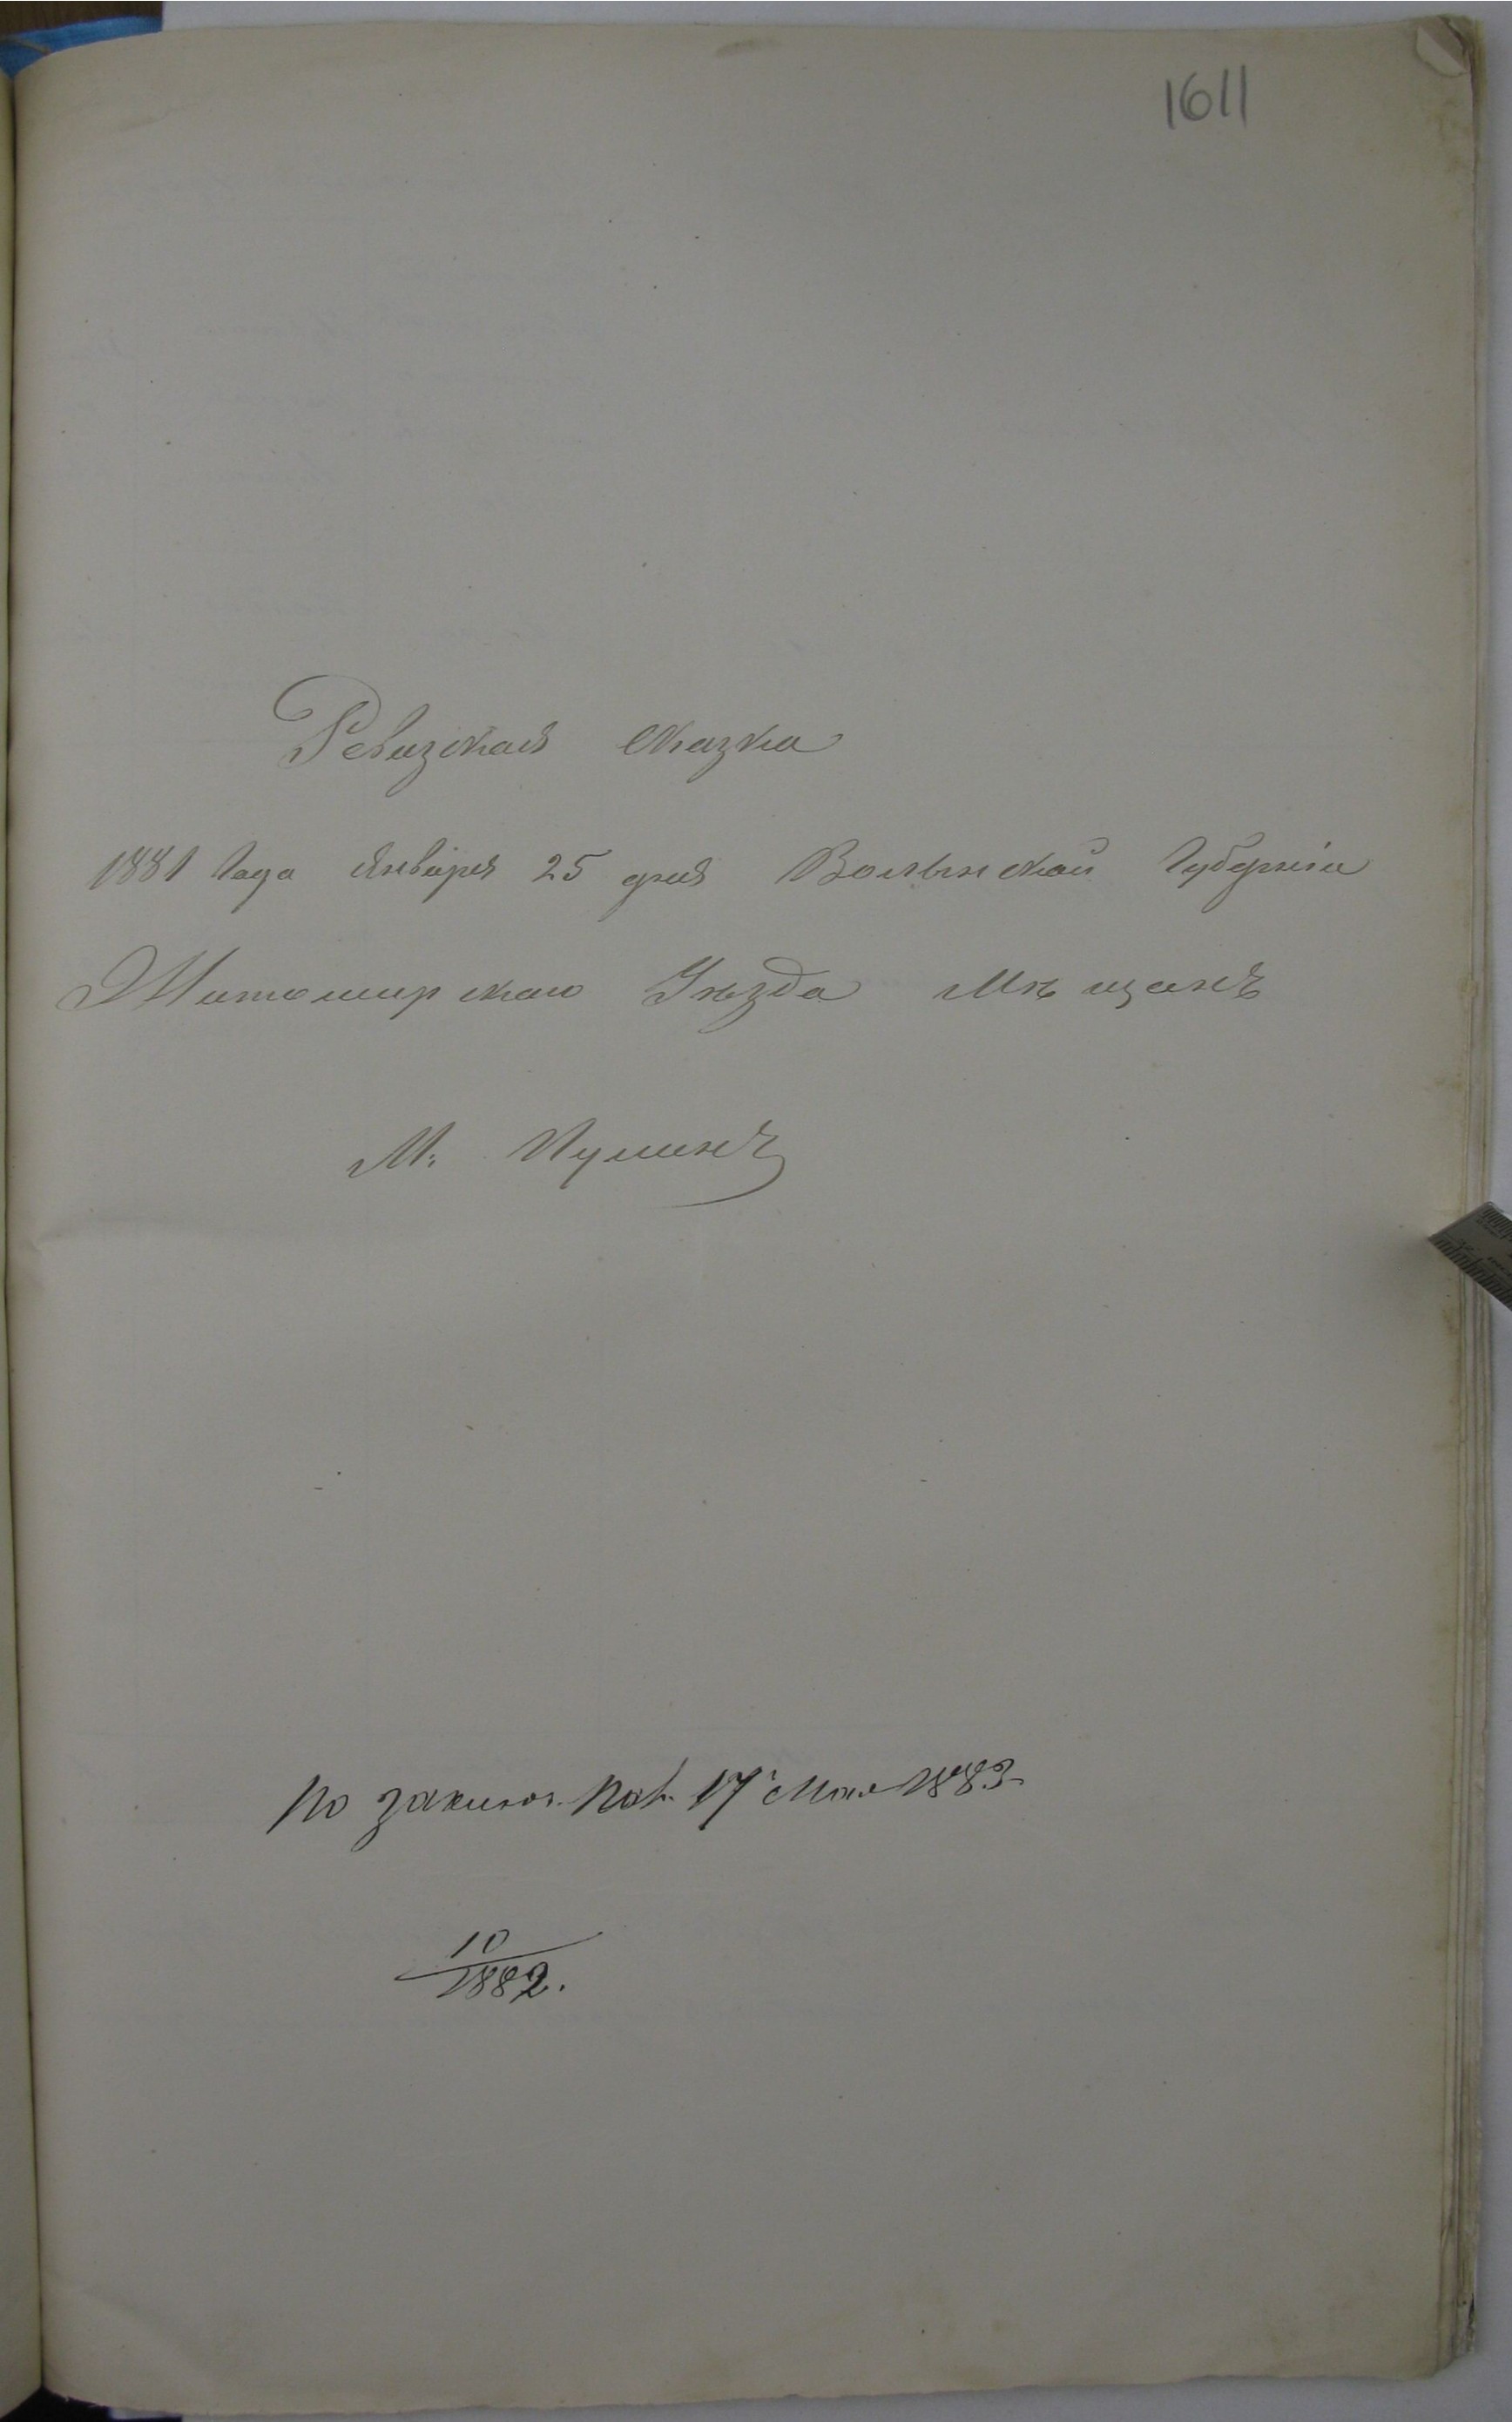 1611
Ревизская сказка
1881 Года Января 25 дня Волынской Губерніи
Житомирскаго Уѣзда Мѣщанъ
М. Пулинъ
По заключ. Пал. 17 Мая 1883
10
1882.